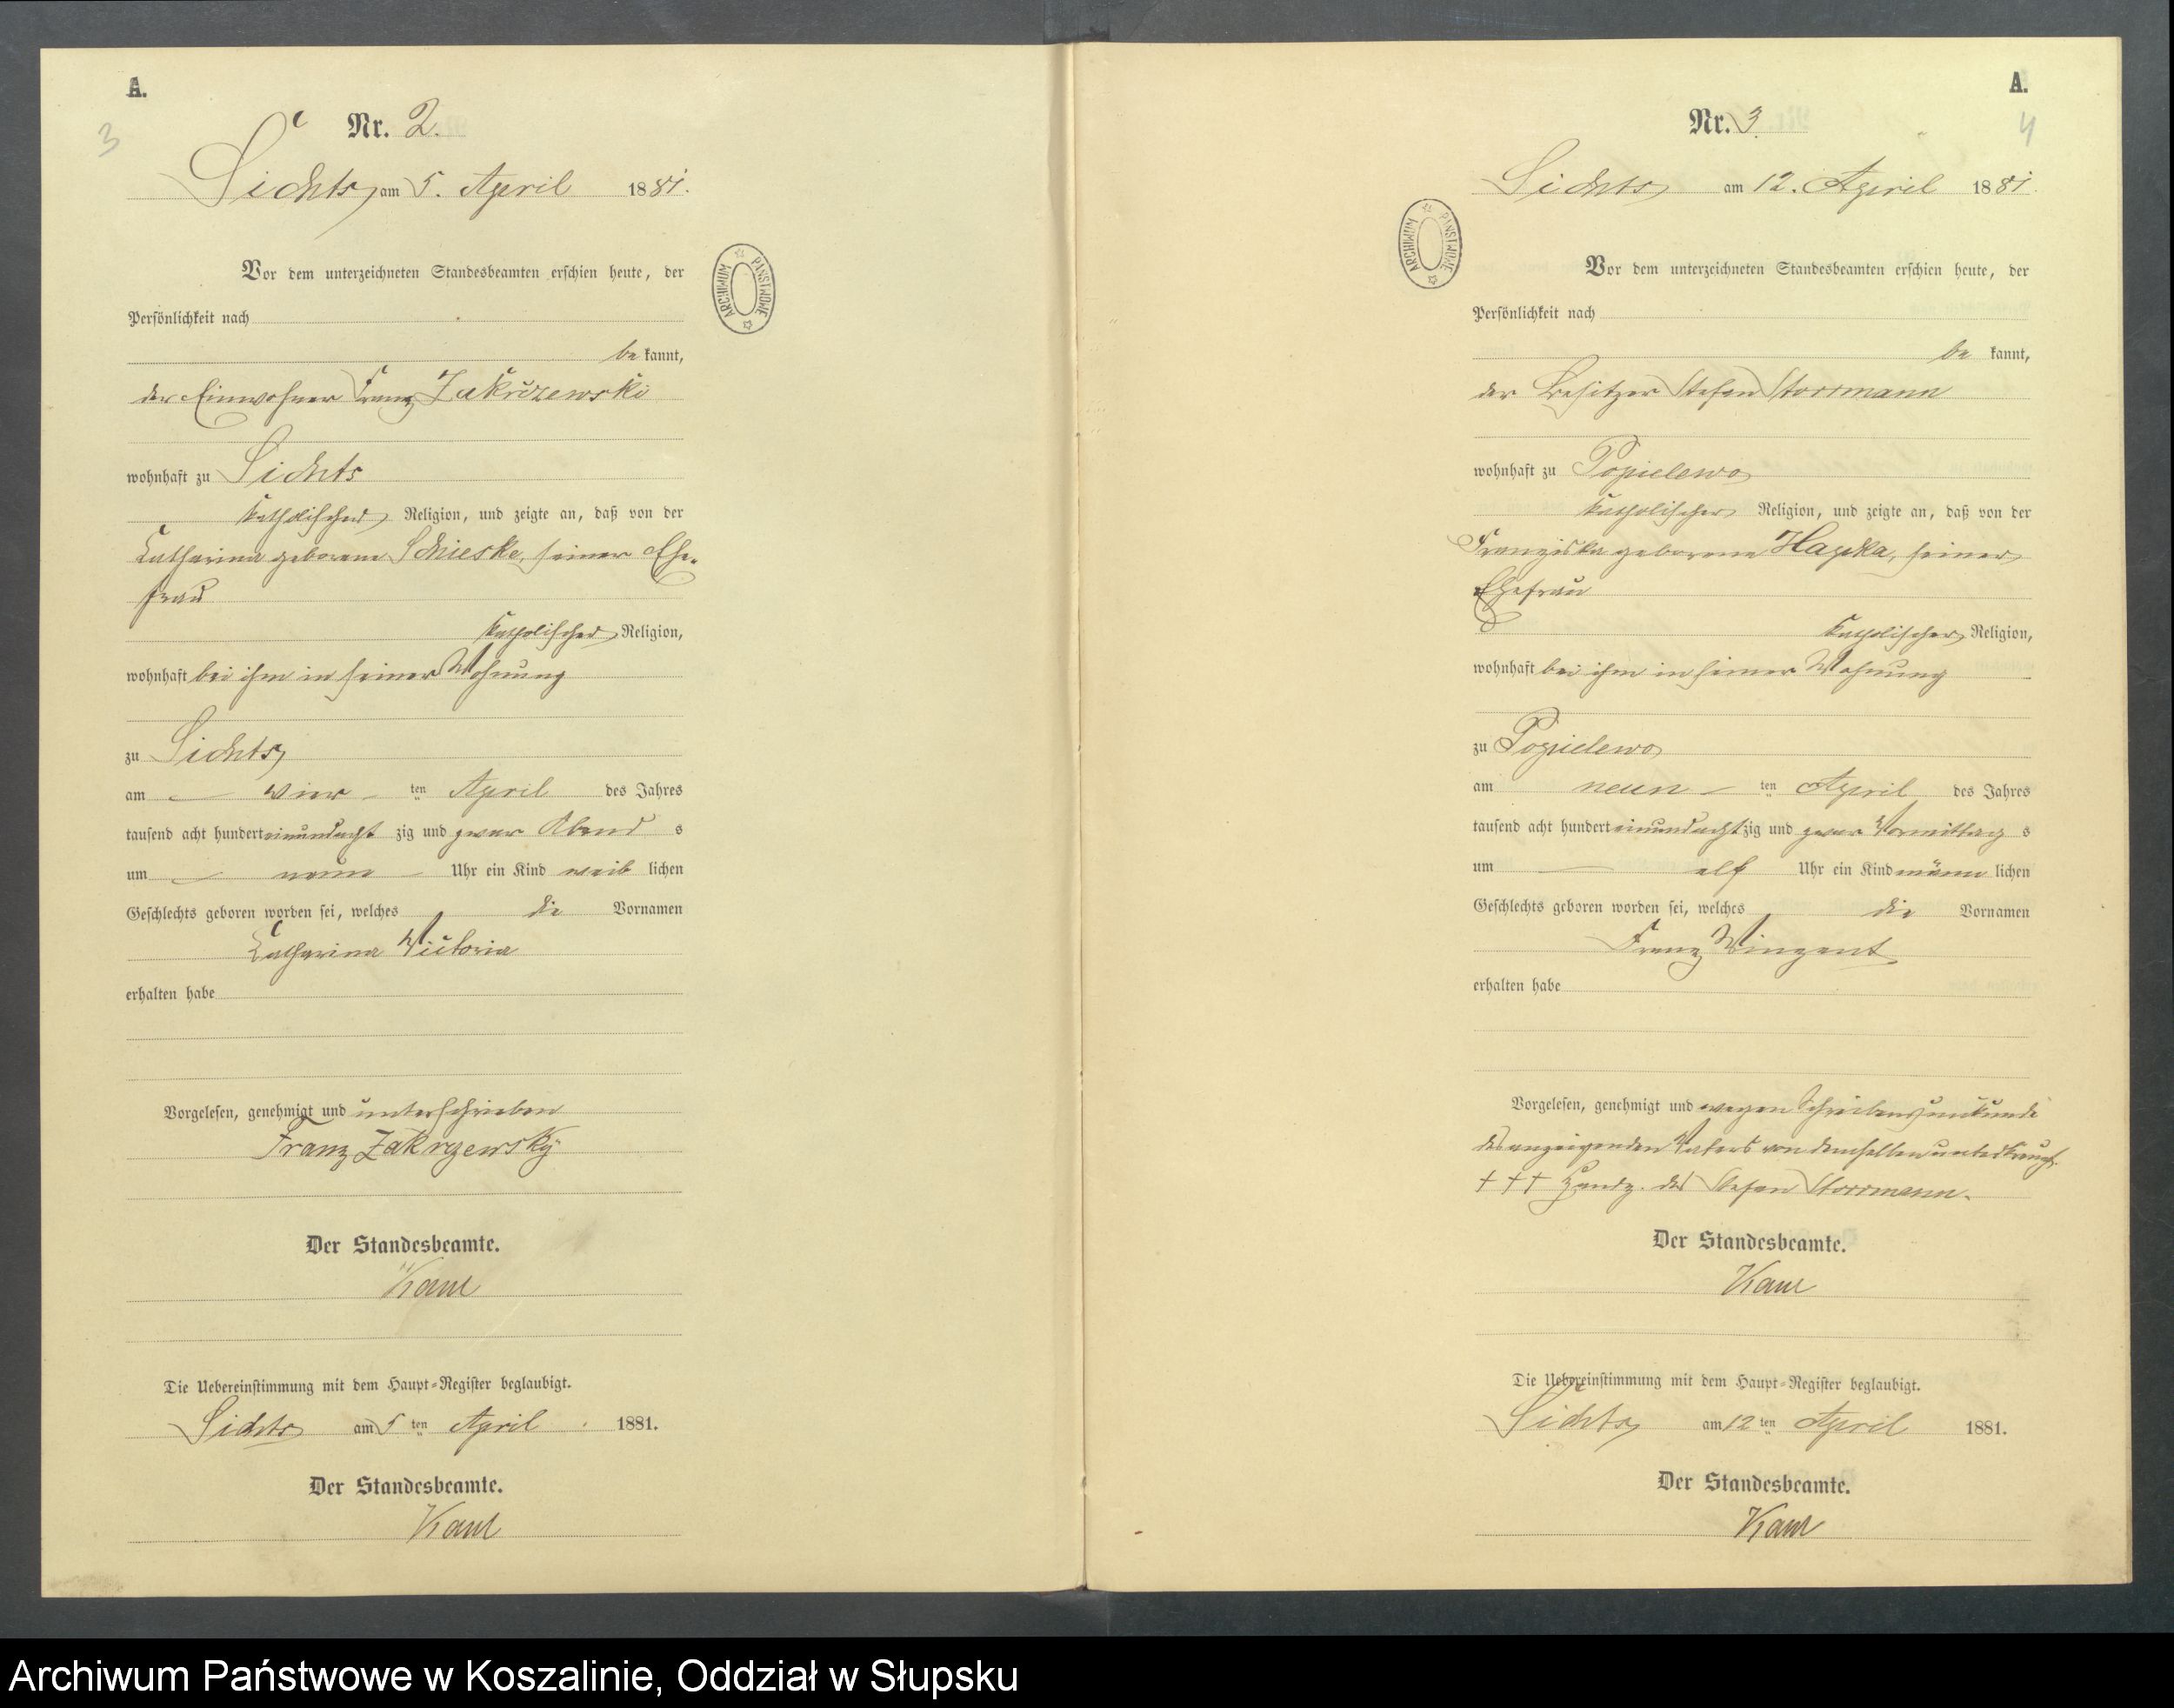 A.
3
Nr. 2.
Sichts am 5. April 1881.
Vor dem unterzeichneten Standesbeamten erschien heute, der
Persönlichkeit nach
be kannt,
der Einwohner Franz Zakrzewski
wohnhaft zu Sichts
katholischer Religion, und zeigte an, daß von der
Catharina geborene Schieske, seiner Ehe-
frau
katholischer Religion,
wohnhaft bei ihm in seiner Wohnung
zu Sichts
am vier ten April des Jahres
tausend acht hundert einundacht zig und zwar Abend s
um neun Uhr ein Kind weib lichen
Geschlechts geboren worden sei, welches die Vornamen
Catharina Victoria
erhalten habe
Vorgelesen, genehmigt und unterschrieben
Franz Zakrzewsky
Der Standesbeamte.
Die Uebereinstimmung mit dem Haupt=Register beglaubigt.
Sichts am 5 ten April 1881.
Der Standesbeamte.
ARCHIWUM PAŃSTWOWE
A.
4
Nr. 3.
Sichts am 12. April 1881.
Vor dem unterzeichneten Standesbeamten erschien heute, der
Persönlichkeit nach
be kannt,
der Besitzer Stefan Storrmann
wohnhaft zu Popielewo
katholischer Religion, und zeigte an, daß von der
Franziska geborene Hapka, seiner
Ehefrau
katholischer Religion,
wohnhaft bei ihm in seiner Wohnung
zu Popielewo
am neun ten April des Jahres
tausend acht hundert einundacht zig und zwar Vormittag s
um elf Uhr ein Kind männ lichen
Geschlechts geboren worden sei, welches die Vornamen
Franz Vinzent
erhalten habe
Vorgelesen, genehmigt und wegen Schreibensunkunde
des anzeigenden Vaters von demselben unterkreuzt.
+++ Handz. des Stefan Storrmann.
Der Standesbeamte.
Die Uebereinstimmung mit dem Haupt=Register beglaubigt.
Sichts am 12 ten April 1881.
Der Standesbeamte.
ARCHIWUM PAŃSTWOWE
Archiwum Państwowe w Koszalinie, Oddział w Słupsku